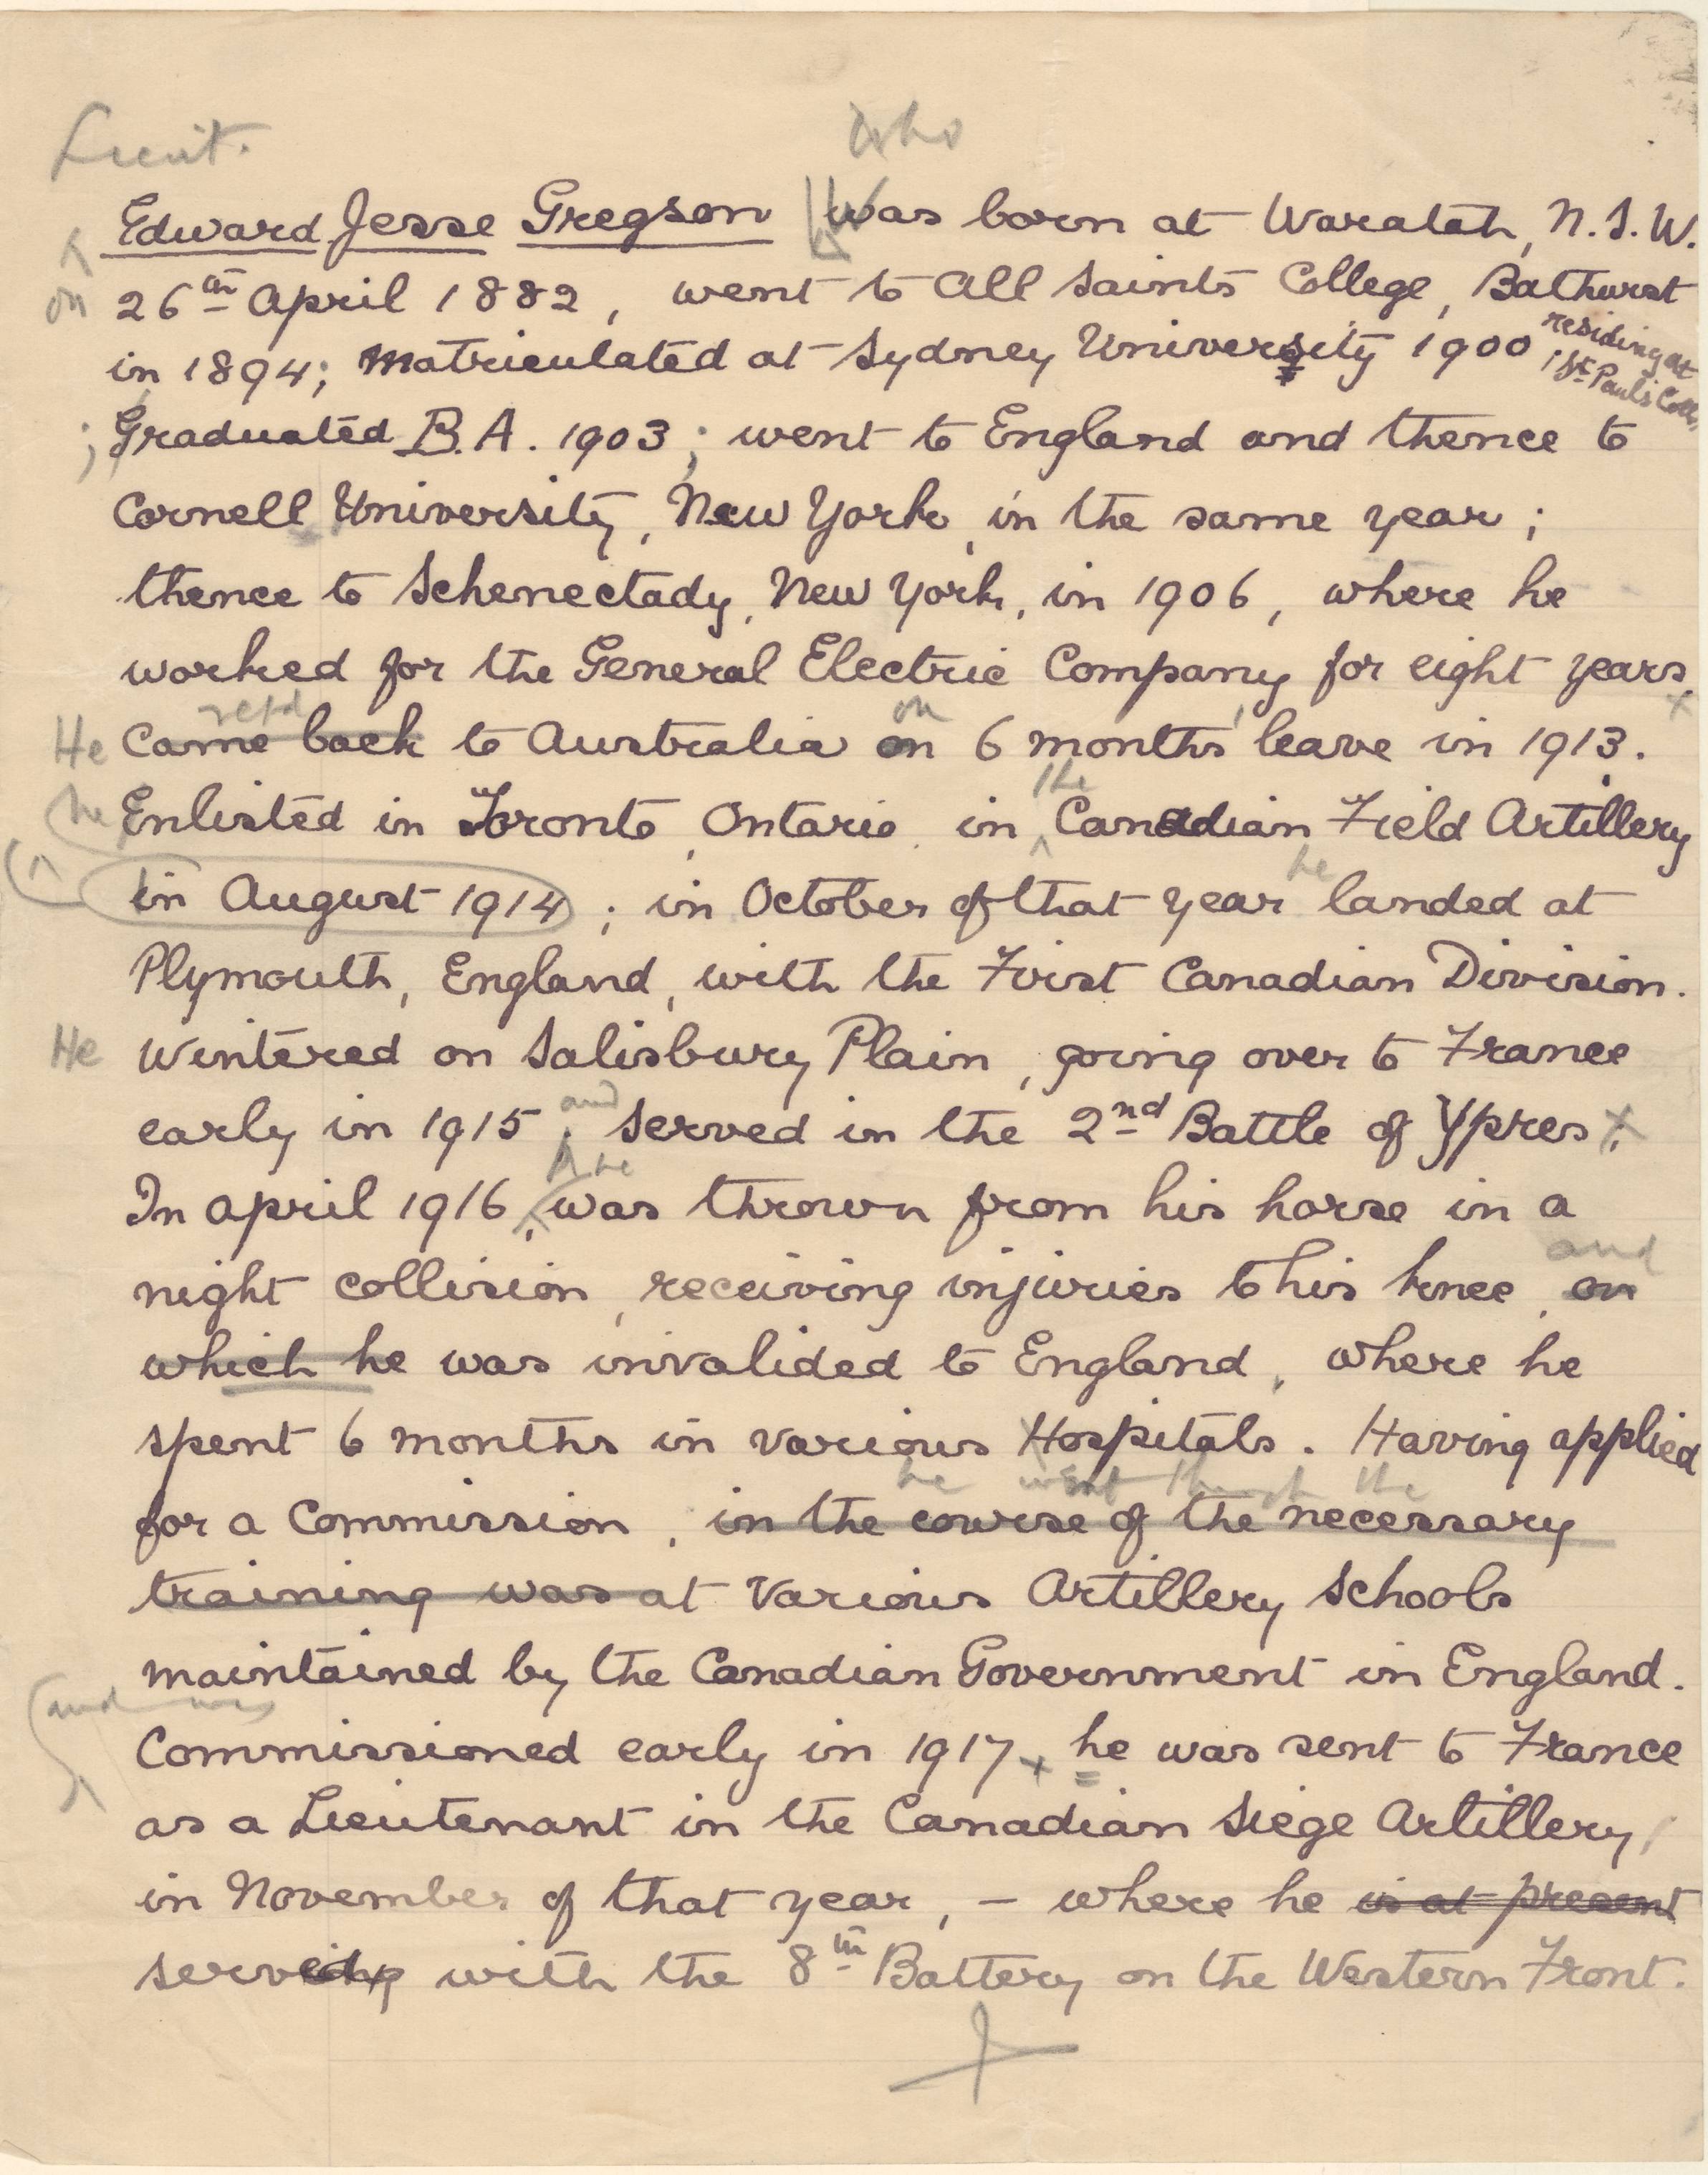 Lieut. Who
Edward Jesse Gregson Was born at Waratah, N.S.W.
on 26th April 1882, went to All Saints College, Bathurst
in 1894; Matriculated at Sydney University 1900, residing at
St Paul's Coll.
; Graduated B.A. 1903; went to England and thence to
Cornell University, New York, in the same year;
thence to Schenectady, New York, in 1906, where he
worked for the General Electric Company for eight years.
retd on
He Came back to Australia on 6 months' leave in 1913.
the
he Enlisted in Toronto, Ontario, in Canadian Field Artillery
he
in August 1914; in October of that year landed at
Plymouth, England, with the First Canadian Division.
He Wintered on Salisbury Plain, going over to France
and
early in 1915, served in the 2nd Battle of Ypres.
he
In April 1916, was thrown from his horse in a
and
night collision, receiving injuries to his knee, on
which he was invalided to England, where he
spent 6 months in various Hospitals. Having applied
he went through the
for a Commission, in the course of the necessary
training was at Various Artillery Schools
maintained by the Canadian Government in England.
and was
Commissioned early in 1917, he was sent to France
as a Lieutenant in the Canadian Siege Artillery,
in November of that year, - where he is at present
served with the 8th Battery on the Western Front.